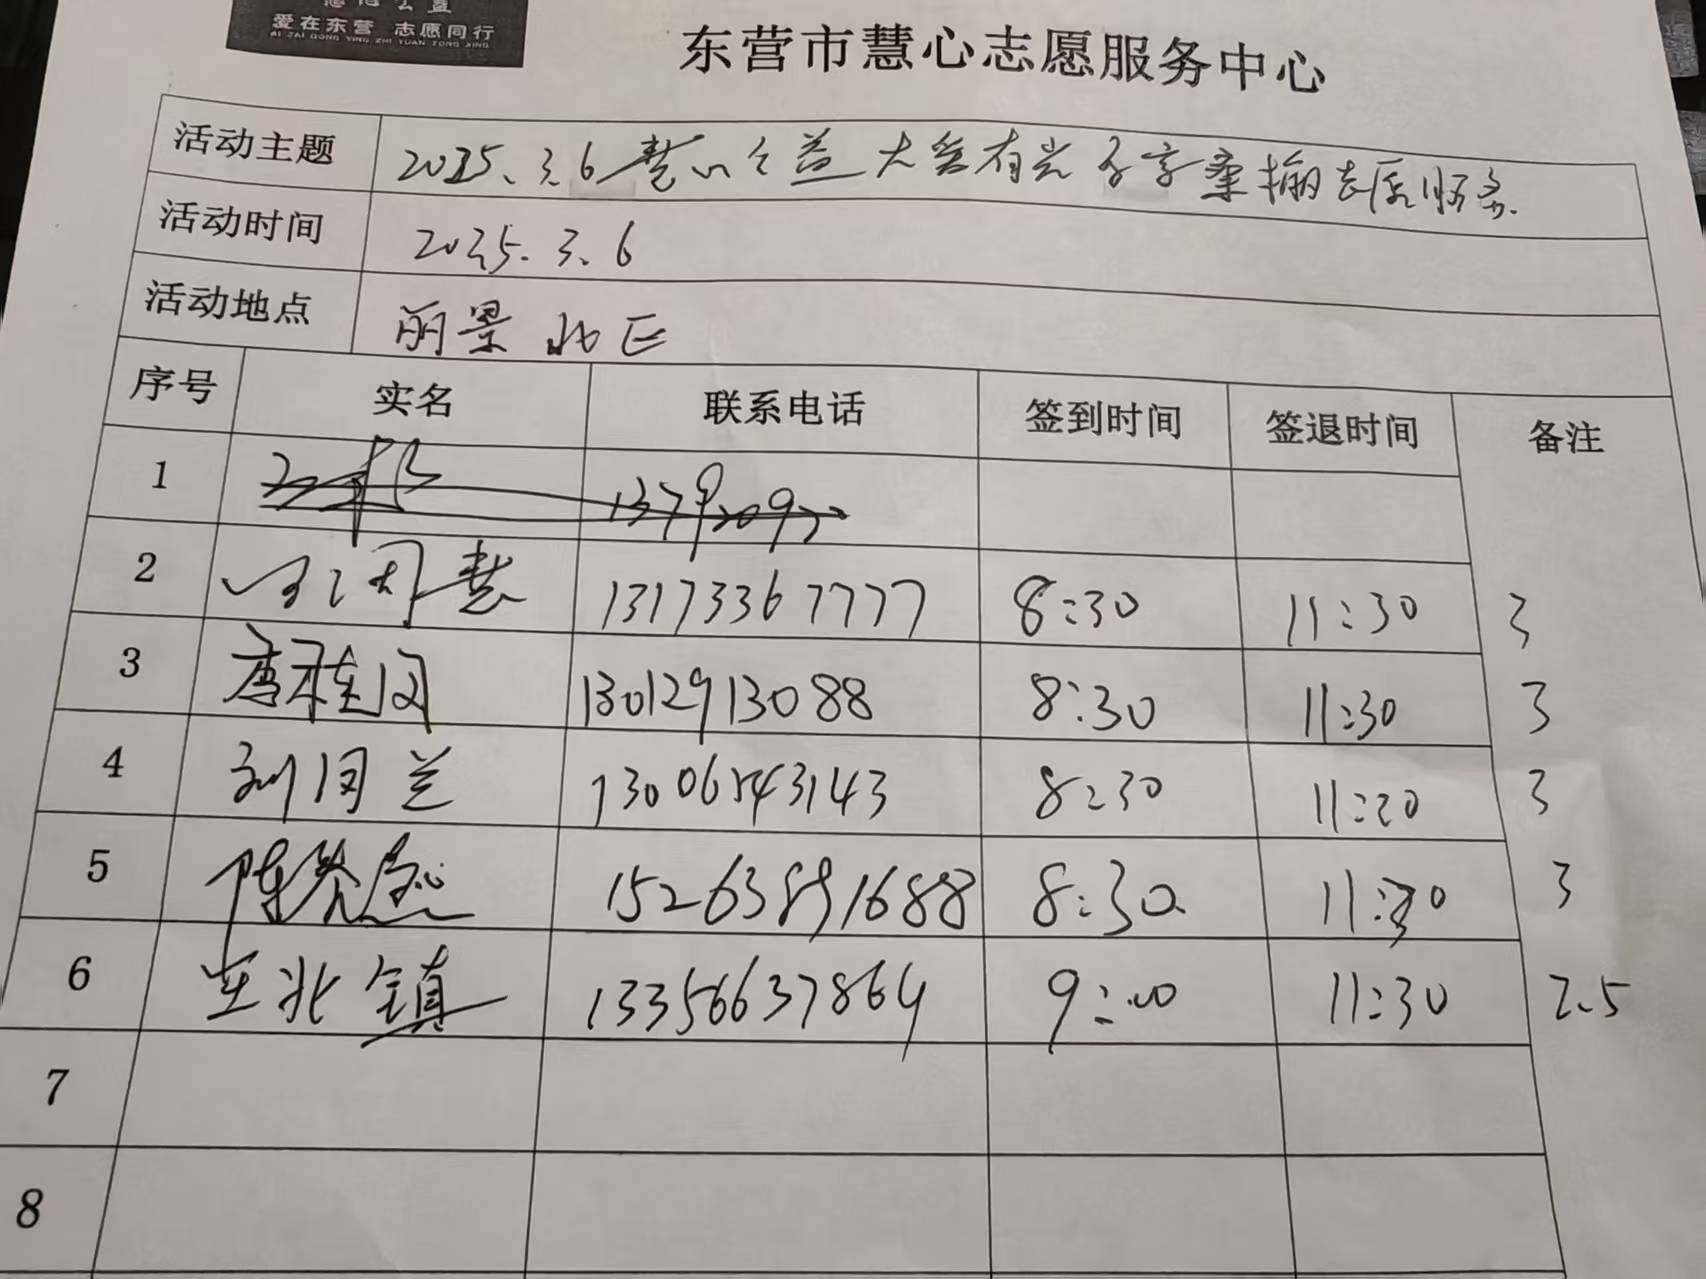 爱在东营 志愿同行
AI ZAI DONG YING ZHI YUAN TONG XING
东营市慧心志愿服务中心
活动主题 2025.3.6慧心公益大爱有光 志愿服务
活动时间 2025.3.6
活动地点 丽景北区
序号 实名 联系电话 签到时间 签退时间 备注
1
2 慧 13173367777 8:30 11:30 3
3 唐 13012913088 8:30 11:30 3
4 刘同兰 13006543143 8:30 11:30 3
5 陈 15263891688 8:30 11:30 3
6 北镇 13356637864 9:00 11:30 2.5
7
8